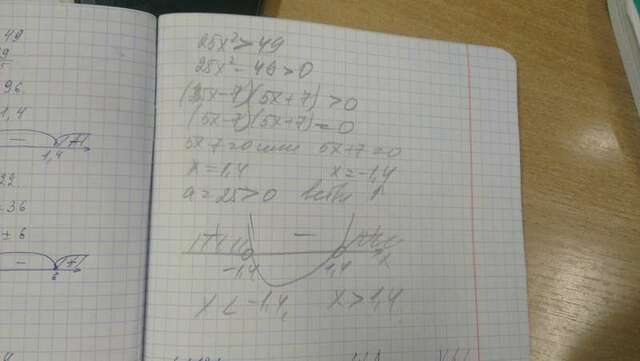 49
96.
1,4
- +
1,4
22
= 36
± 6
- +
25x² > 49
25x² - 49 > 0
(5x-7)(5x+7) > 0
(5x-7)(5x+7) = 0
5x-7=0 или 5x+7=0
x = 1,4 x = -1,4
a = 25 > 0 ветви
+ - +
-1,4 1,4 x
x < -1,4, x > 1,4